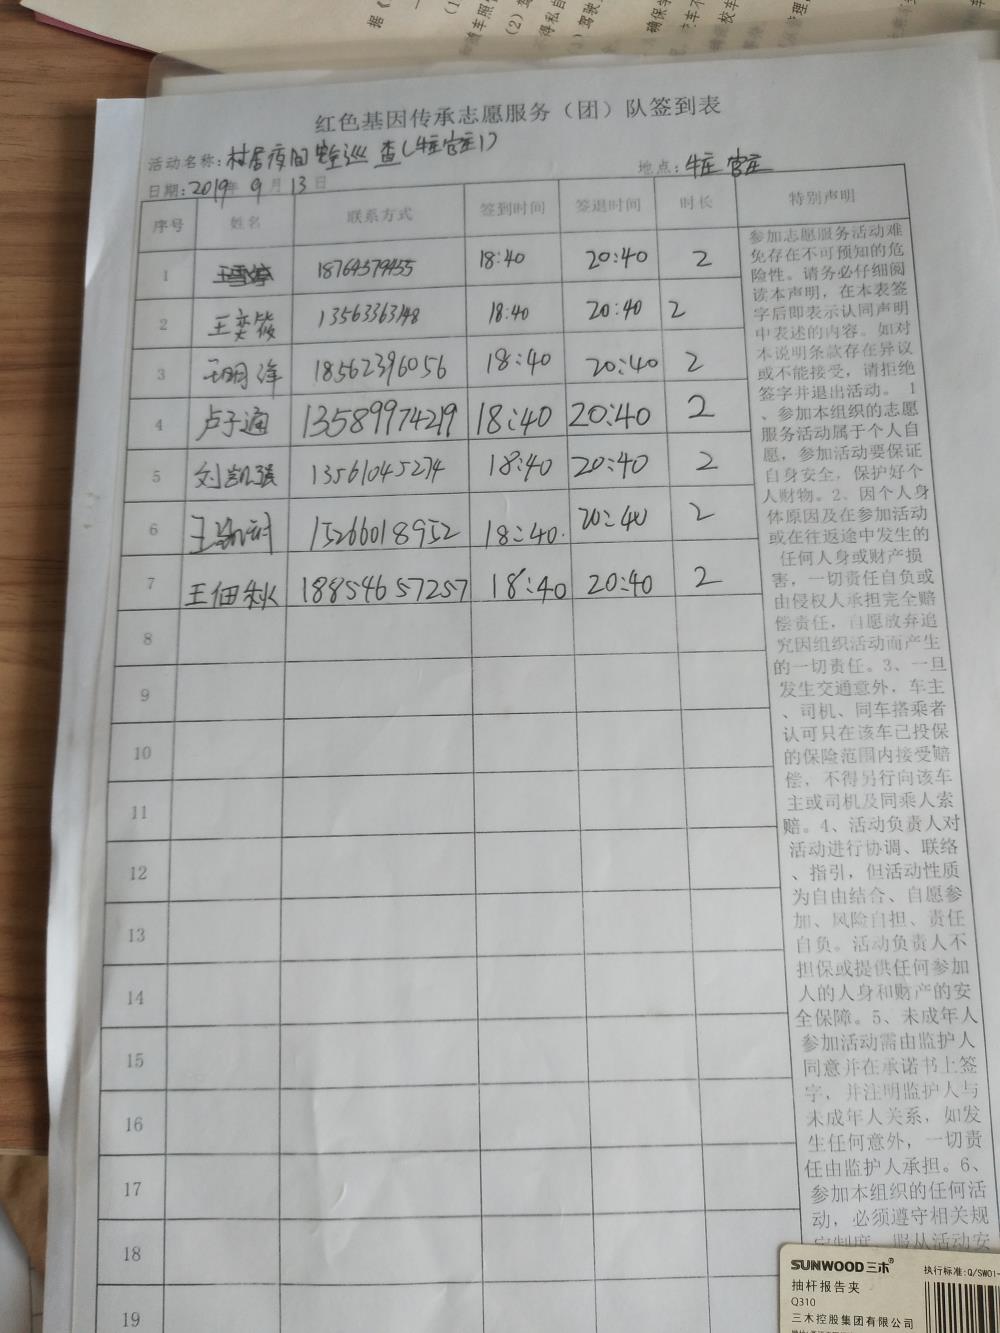 红色基因传承志愿服务（团）队签到表
活动名称：村居夜间安全巡查（牛庄官庄）
地点：牛庄 官庄
日期：2019年9月13日
序号 姓名 联系方式 签到时间 签退时间 时长 特别声明
1 18764579455 18:40 20:40 2
2 王奕筱 13563363148 18:40 20:40 2
3 18562396056 18:40 20:40 2
4 卢子通 13589974219 18:40 20:40 2
5 刘凯强 13561045274 18:40 20:40 2
6 15266018952 18:40 20:40 2
7 王佃秋 18854657257 18:40 20:40 2
8
9
10
11
12
13
14
15
16
17
18
19
参加志愿服务活动难
免存在不可预知的危
险性。请务必仔细阅
读本声明，在本表签
字后即表示认同声明
中表述的内容。如对
本说明条款存在异议
或不能接受，请拒绝
签字并退出活动。1
、参加本组织的志愿
服务活动属于个人自
愿，参加活动要保证
自身安全，保护好个
人财物。2、因个人身
体原因及在参加活动
或在往返途中发生的
任何人身或财产损
害，一切责任自负或
由侵权人承担完全赔
偿责任，自愿放弃追
究因组织活动而产生
的一切责任。3、一旦
发生交通意外，车主
、司机、同车搭乘者
认可只在该车已投保
的保险范围内接受赔
偿，不得另行向该车
主或司机及同乘人索
赔。4、活动负责人对
活动进行协调、联络
、指引，但活动性质
为自由结合、自愿参
加、风险自担、责任
自负。活动负责人不
担保或提供任何参加
人的人身和财产的安
全保障。5、未成年人
参加活动需由监护人
同意并在承诺书上签
字，并注明监护人与
未成年人关系，如发
生任何意外，一切责
任由监护人承担。6、
参加本组织的任何活
动，必须遵守相关规
定制度，服从活动安
SUNWOOD三木®
执行标准:Q/SW01-
抽杆报告夹
Q310
三木控股集团有限公司